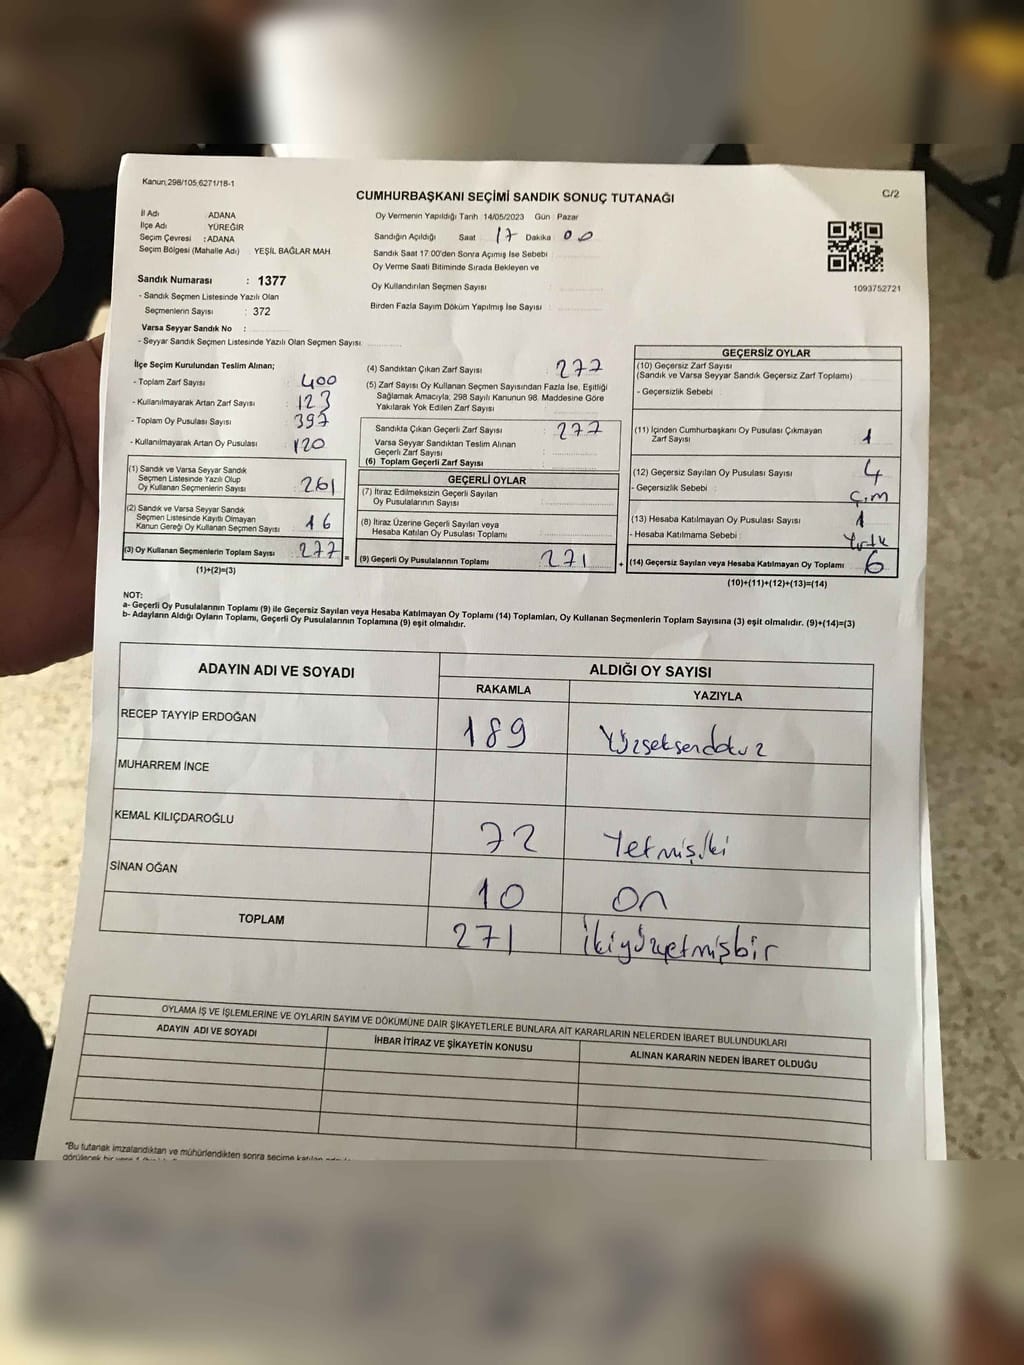 Kanun;298/105;6271/18-1
CUMHURBAŞKANI SEÇİMİ SANDIK SONUÇ TUTANAĞI
C/2
İl Adı : ADANA
İlçe Adı : YÜREĞİR
Seçim Çevresi : ADANA
Seçim Bölgesi (Mahalle Adı) : YEŞİL BAĞLAR MAH
Sandık Numarası : 1377
- Sandık Seçmen Listesinde Yazılı Olan
Seçmenlerin Sayısı : 372
Varsa Seyyar Sandık No :
- Seyyar Sandık Seçmen Listesinde Yazılı Olan Seçmen Sayısı
Oy Vermenin Yapıldığı Tarih :14/05/2023 Gün : Pazar
Sandığın Açıldığı Saat : 17 Dakika : 00
Sandık Saat 17:00'den Sonra Açımış İse Sebebi
Oy Verme Saati Bitiminde Sırada Bekleyen ve
Oy Kullandırılan Seçmen Sayısı :
Birden Fazla Sayım Döküm Yapılmış İse Sayısı :
1093752721
İlçe Seçim Kurulundan Teslim Alınan;
- Toplam Zarf Sayısı : 400
- Kullanılmayarak Artan Zarf Sayısı : 123
- Toplam Oy Pusulası Sayısı : 397
- Kullanılmayarak Artan Oy Pusulası : 120
(1) Sandık ve Varsa Seyyar Sandık
Seçmen Listesinde Yazılı Olup
Oy Kullanan Seçmenlerin Sayısı : 261
(2) Sandık ve Varsa Seyyar Sandık
Seçmen Listesinde Kayıtlı Olmayan
Kanun Gereği Oy Kullanan Seçmen Sayısı : 16
(3) Oy Kullanan Seçmenlerin Toplam Sayısı : 277
(1)+(2)=(3)
(4) Sandıktan Çıkan Zarf Sayısı : 277
(5) Zarf Sayısı Oy Kullanan Seçmen Sayısından Fazla İse, Eşitliği
Sağlamak Amacıyla; 298 Sayılı Kanunun 98. Maddesine Göre
Yakılarak Yok Edilen Zarf Sayısı :
Sandıkta Çıkan Geçerli Zarf Sayısı : 277
Varsa Seyyar Sandıktan Teslim Alınan
Geçerli Zarf Sayısı :
(6) Toplam Geçerli Zarf Sayısı :
GEÇERLİ OYLAR
(7) İtiraz Edilmeksizin Geçerli Sayılan
Oy Pusulalarının Sayısı :
(8) İtiraz Üzerine Geçerli Sayılan veya
Hesaba Katılan Oy Pusulaları Toplamı :
= (9) Geçerli Oy Pusulalarının Toplamı : 271
GEÇERSİZ OYLAR
(10) Geçersiz Zarf Sayısı
(Sandık ve Varsa Seyyar Sandık Geçersiz Zarf Toplamı)
- Geçersizlik Sebebi :
(11) İçinden Cumhurbaşkanı Oy Pusulası Çıkmayan
Zarf Sayısı : 1
(12) Geçersiz Sayılan Oy Pusulası Sayısı : 4
- Geçersizlik Sebebi :
(13) Hesaba Katılmayan Oy Pusulası Sayısı : 1
- Hesaba Katılmama Sebebi :
+ (14) Geçersiz Sayılan veya Hesaba Katılmayan Oy Toplamı : 6
(10)+(11)+(12)+(13)=(14)
NOT:
a- Geçerli Oy Pusulalarının Toplamı (9) ile Geçersiz Sayılan veya Hesaba Katılmayan Oy Toplamı (14) Toplamları, Oy Kullanan Seçmenlerin Toplam Sayısına (3) eşit olmalıdır. (9)+(14)=(3)
b- Adayların Aldığı Oyların Toplamı, Geçerli Oy Pusulalarının Toplamına (9) eşit olmalıdır.
ADAYIN ADI VE SOYADI
ALDIĞI OY SAYISI
RAKAMLA YAZIYLA
RECEP TAYYİP ERDOĞAN 189 Yüzseksendokuz
MUHARREM İNCE
KEMAL KILIÇDAROĞLU 72 Yetmişiki
SİNAN OĞAN 10 On
TOPLAM 271 İkiyüzyetmişbir
OYLAMA İŞ VE İŞLEMLERİNE VE OYLARIN SAYIM VE DÖKÜMÜNE DAİR ŞİKAYETLERLE BUNLARA AİT KARARLARIN NELERDEN İBARET BULUNDUKLARI
ADAYIN ADI VE SOYADI İHBAR İTİRAZ VE ŞİKAYETİN KONUSU ALINAN KARARIN NEDEN İBARET OLDUĞU
*Bu tutanak imzalandıktan ve mühürlendikten sonra seçime katılan